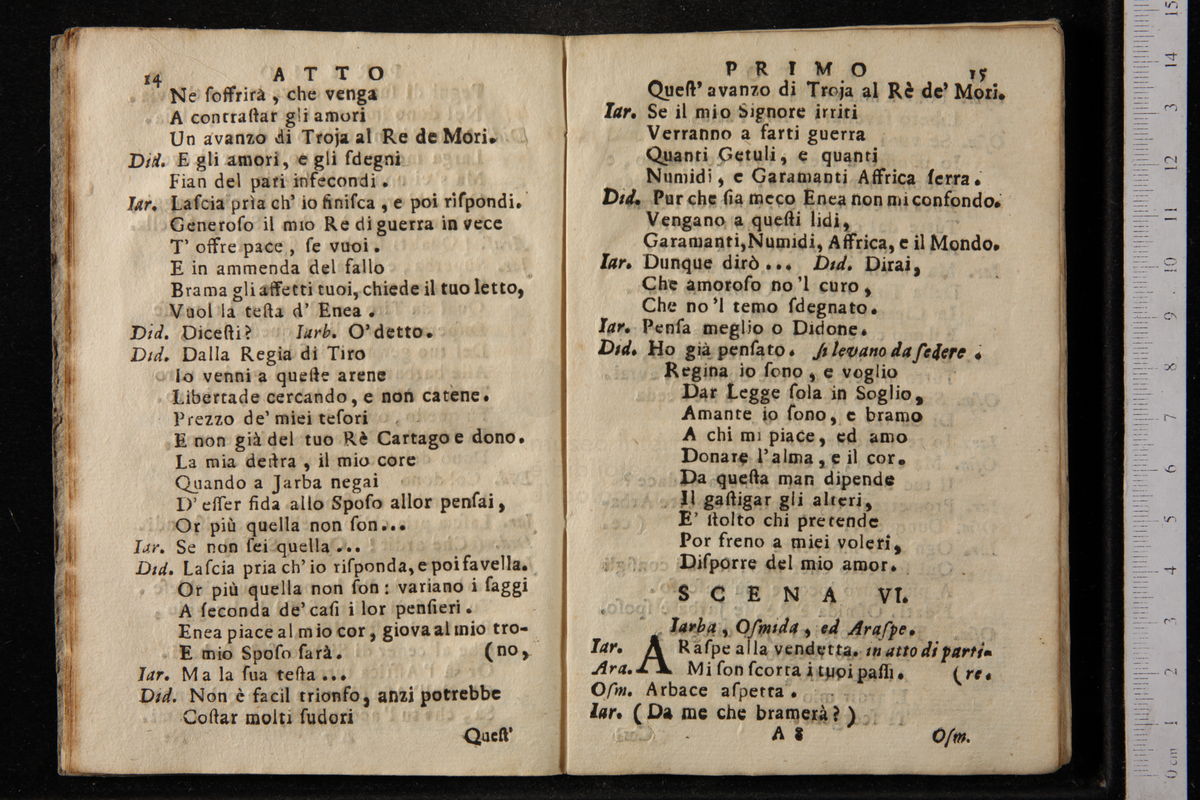 14 ATTO
Ne ſoffrirà, che venga
A contraſtar gli amori
Un avanzo di Troja al Re de Mori.
Did. E gli amori, e gli ſdegni
Fian del pari infecondi.
Iar. Laſcia pria ch' io finiſca, e poi riſpondi.
Generoſo il mio Re di guerra in vece
T' offre pace, ſe vuoi.
E in ammenda del fallo
Brama gli affetti tuoi, chiede il tuo letto,
Vuol la teſta d' Enea.
Did. Diceſti? Iarb. O' detto.
Did. Dalla Regia di Tiro
Io venni a queſte arene
Libertade cercando, e non catene.
Prezzo de' miei teſori
E non già del tuo Rè Cartago e dono.
La mia deſtra, il mio core
Quando a Jarba negai
D' eſſer fida allo Spoſo allor penſai,
Or più quella non ſon...
Iar. Se non ſei quella...
Did. Laſcia pria ch' io riſponda, e poi favella.
Or più quella non ſon: variano i ſaggi
A ſeconda de' caſi i lor penſieri.
Enea piace al mio cor, giova al mio tro-
E mio Spoſo ſarà. (no,
Iar. Ma la ſua teſta...
Did. Non è facil trionfo, anzi potrebbe
Coſtar molti ſudori
Queſt'
PRIMO 15
Queſt' avanzo di Troja al Rè de' Mori.
Iar. Se il mio Signore irriti
Verranno a farti guerra
Quanti Getuli, e quanti
Numidi, e Garamanti Affrica ſerra.
Did. Pur che ſia meco Enea non mi confondo.
Vengano a queſti lidi,
Garamanti, Numidi, Affrica, e il Mondo.
Iar. Dunque dirò... Did. Dirai,
Che amoroſo no 'l curo,
Che no 'l temo ſdegnato.
Iar. Penſa meglio o Didone.
Did. Ho già penſato. ſi levano da ſedere.
Regina io ſono, e voglio
Dar Legge ſola in Soglio,
Amante io ſono, e bramo
A chi mi piace, ed amo
Donare l'alma, e il cor.
Da queſta man dipende
Il gaſtigar gli alteri,
E' ſtolto chi pretende
Por freno a miei voleri,
Diſporre del mio amor.
SCENA VI.
Iarba, Oſmida, ed Araſpe.
Iar. ARaſpe alla vendetta. in atto di parti-
Ara. Mi ſon ſcorta i tuoi paſſi. (re.
Oſm. Arbace aſpetta.
Iar. (Da me che bramerà?)
A 8 Oſm.
0 cm 1 2 3 4 5 6 7 8 9 10 11 12 3 14 15